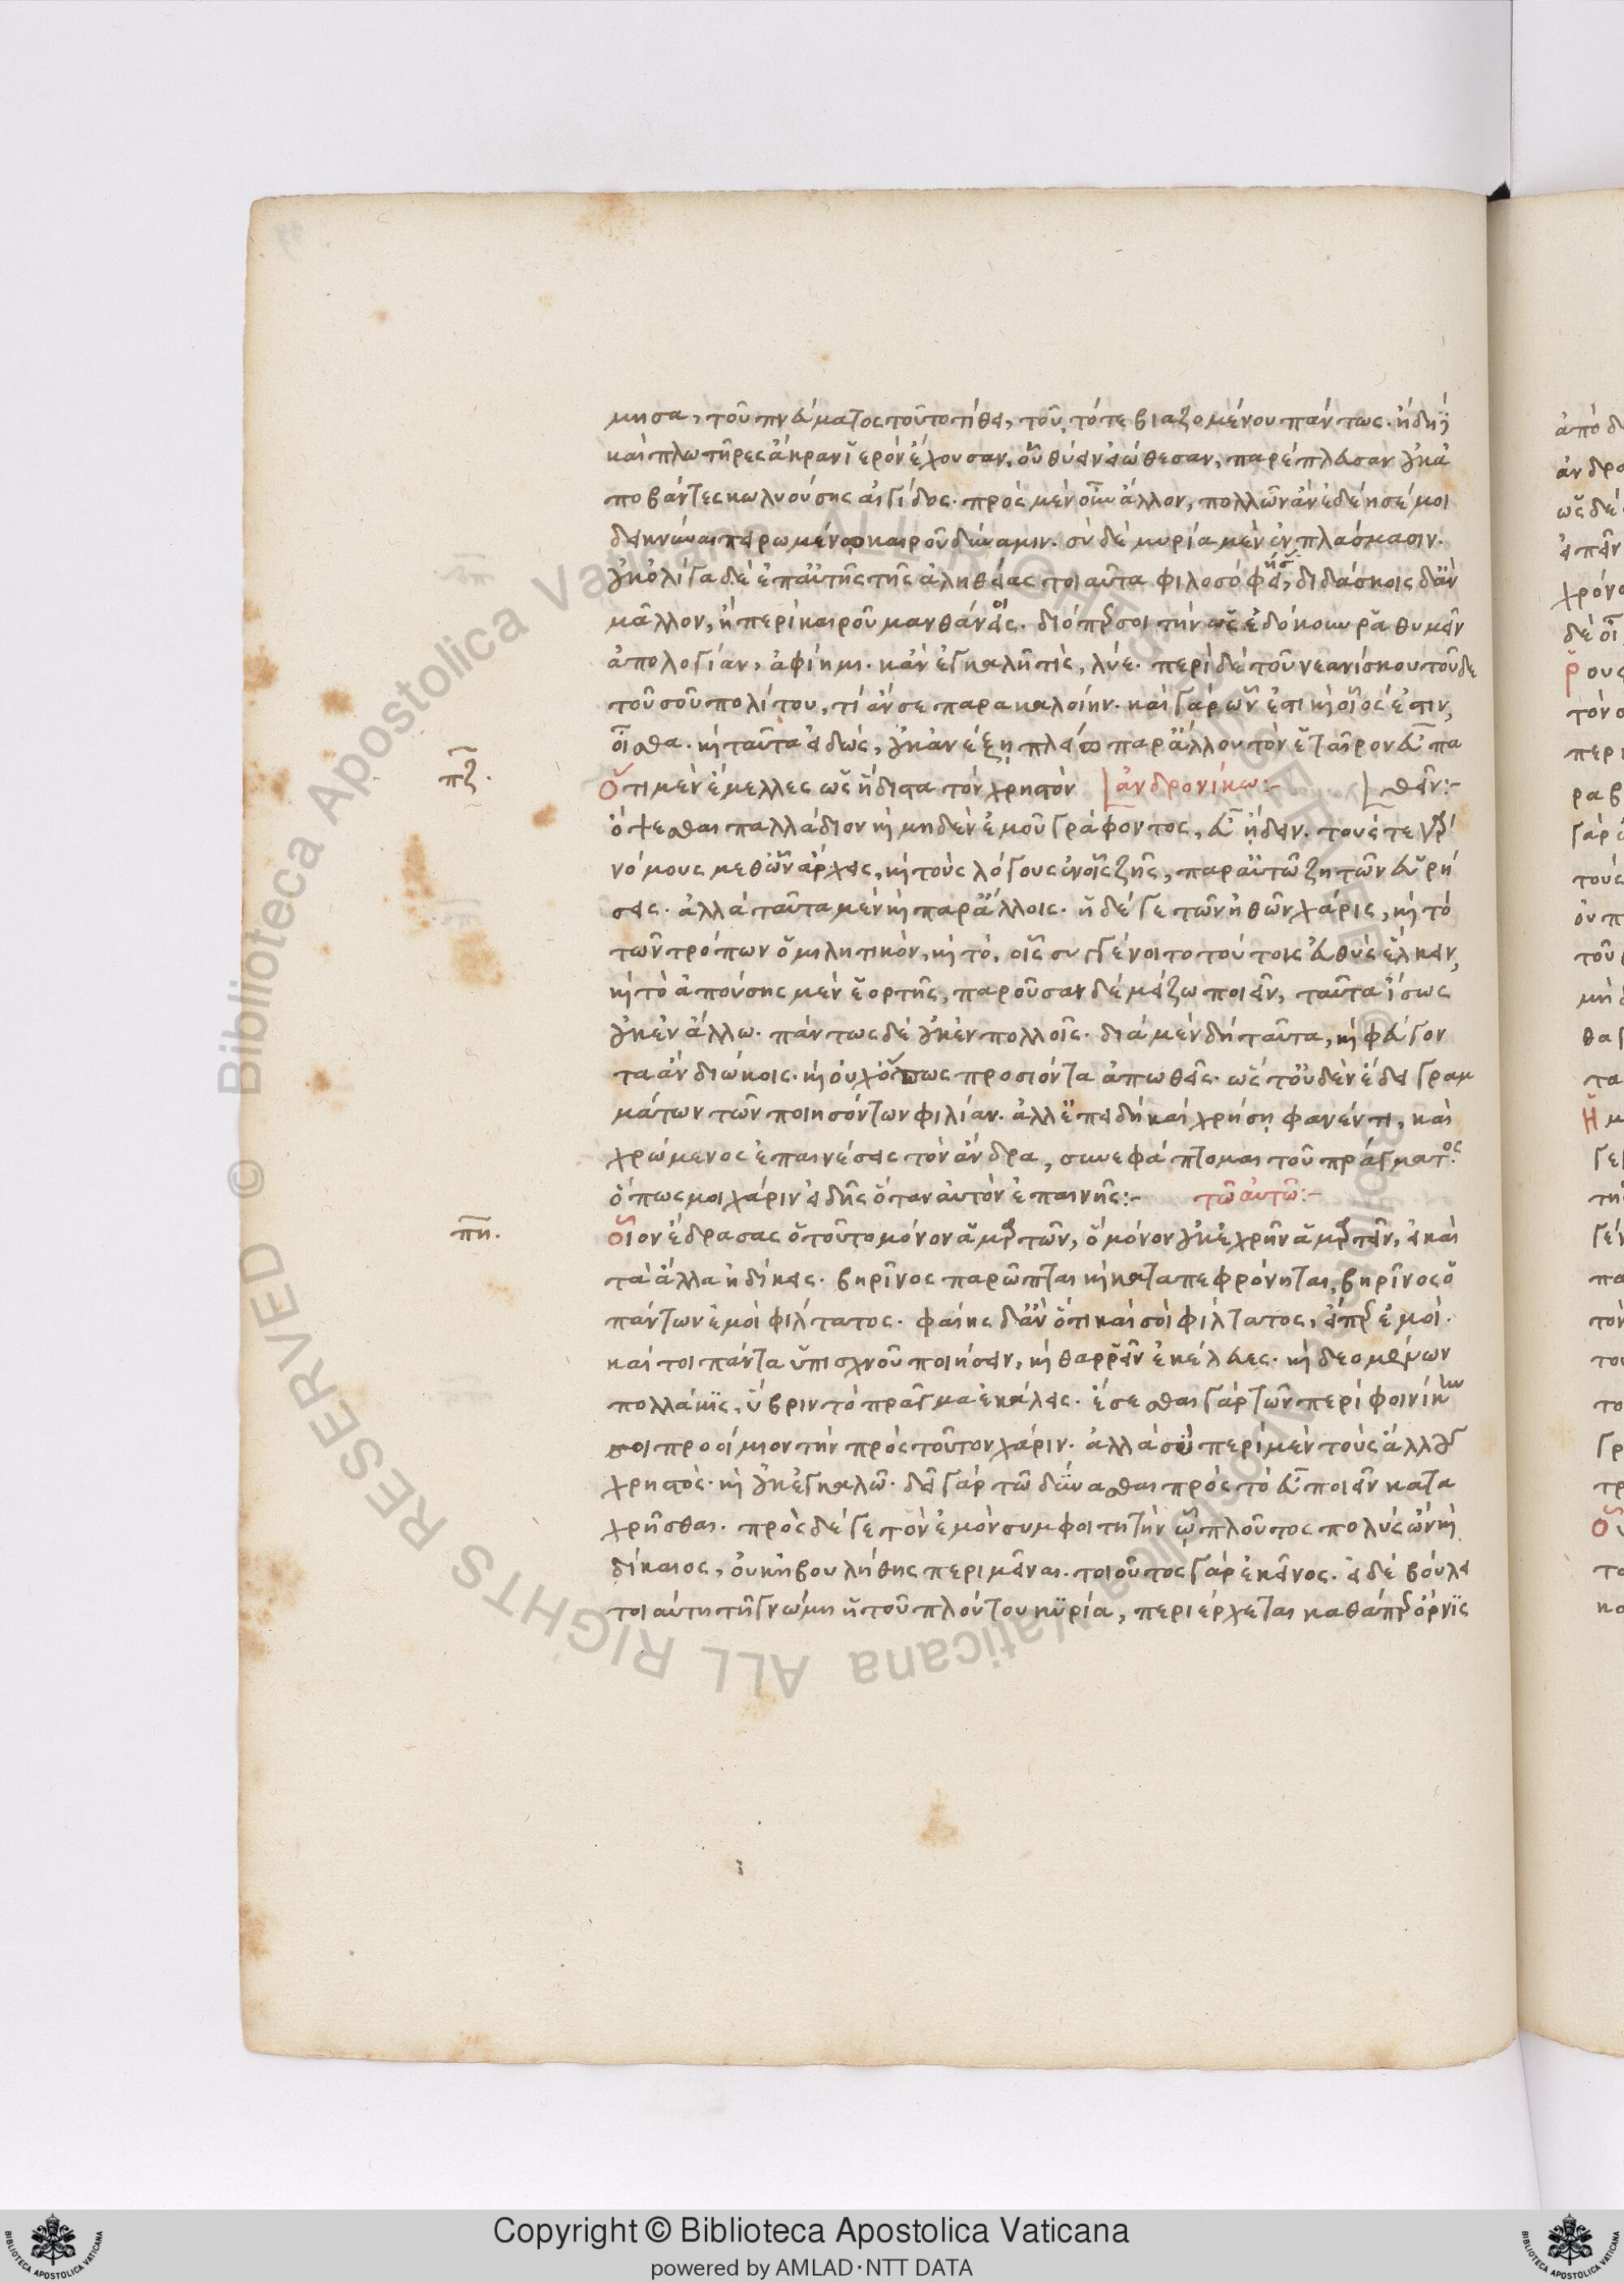 μησα, τοῦ πνεύματος τοῦτο τίθει, τοῦ τότε βιαζομένου πάντως. ἤδη
καὶ πλωτῆρες ἄκραν ἱερὸν ἔχουσαν, οὗ θύειν εἰώθεσαν, παρέπλευσαν οὐκ ἀ
ποβάντες κωλυούσης αἰγίδος. πρὸς μὲν οὖν ἄλλον, πολλῶν ἂν ἐδέησέ μοι
δεικνύναι πειρωμένω καιροῦ δύναμιν. σὺ δὲ μυρία μὲν ἐν πλάσμασιν.
οὐκ ὀλίγα δὲ ἐπ αὐτῆς τῆς ἀληθείας τοιαῦτα φιλοσόφει, διδάσκοις δ ἂν
μᾶλλον, ἢ περὶ καιροῦ μανθάνεις. διόπερ σοι τὴν ὡς ἐδόκουν ῥαθυμεῖν
ἀπολογίαν, ἀφίημι. κἂν ἐγκαλῆ τις, λύε. περὶ δὲ τοῦ νεανίσκου τοῦδε
τοῦ σοῦ πολίτου, τί ἄν σε παρακαλοίην. καὶ γὰρ ὧν ἐστι κὴ οἷός ἐστιν,
οἶσθα. κὴ ταῦτα εἰδώς, οὐκ ἀνέξη πλείω παρ ἄλλου τὸν ἑταῖρον εὖ πα
πζ.
Ὅτι μὲν ἔμελλες ὡς ἥδιστα τὸν χρηστὸν ἀνδρονίκω:- θεῖν:-
ὄψεσθαι παλλάδιον κὴ μηδὲν ἐμοῦ γράφοντος, εὖ ἤδειν. τούς τε γὰρ
νόμους μεθ ὧν ἄρχεις, κὴ τοὺς λόγους ἐν οἷς ζῆς, παρ αὐτῶ ζητῶν εὑρή
σεις. ἀλλὰ ταῦτα μὲν κὴ παρ ἄλλοις. ἡ δέ γε τῶν ἠθῶν χάρις, κὴ τὸ
τῶν τρόπων ὁμιλητικὸν, κὴ τὸ, οἷς συγγένοιτο τούτοις εὐθὺς ἕλκειν,
κὴ τὸ ἀπούσης μὲν ἑορτῆς, παροῦσαν δὲ μείζω ποιεῖν, ταῦτα ἴσως
οὐκ ἐν ἄλλω. πάντως δὲ οὐκ ἐν πολλοῖς. διὰ μὲν δὴ ταῦτα, κὴ φεύγον
τα ἂν διώκοις. κὴ οὐχ ὅπως προσιόντα ἀπωθεῖς. ὥστ οὐδὲν ἔδει γραμ
μάτων τῶν ποιησόντων φιλίαν. ἀλλ ἐπειδὴ καὶ χρήση φανέντι, καὶ
χρώμενος ἐπαινέσεις τὸν ἄνδρα, συνεφάπτομαι τοῦ πράγματος
ὅπως μοι χάριν εἰδῆς ὅταν αὐτὸν ἐπαινῆς:- τῶ αὐτῶ:-
πη.
Οἷον ἔδρασας ὁ τοῦτο μόνον ἁμαρτῶν, ὃ μόνον οὐκ ἐχρῆν ἁμαρτεῖν, εἰ καὶ
τὰ ἄλλα ἠδίκεις. βηρῖνος παρῶπται κὴ καταπεφρόνηται, βηρῖνος ὁ
πάντων ἐμοὶ φίλτατος. φαίης δ ἂν ὅτι καὶ σοὶ φίλτατος, εἴπερ ἐμοὶ.
καίτοι πάντα ὑπισχνοῦ ποιήσειν, κὴ θαρρεῖν ἐκέλευες. κὴ δεομένων
πολλάκις, ὕβριν τὸ πρᾶγμα ἐκάλεις. ἔσεσθαι γὰρ τῶν περὶ φοινίκην
σοι προοίμιον τὴν πρὸς τοῦτον χάριν. ἀλλὰ σὺ περὶ μὲν τοὺς ἄλλους
χρηστὸς. κὴ οὐκ ἐγκαλῶ. δεῖ γὰρ τῶ δύνασθαι πρὸς τὸ εὖ ποιεῖν κατα
χρῆσθαι. πρὸς δέ γε τὸν ἐμὸν συμφοιτητὴν ᾧ πλοῦτος πολὺς ὢν κὴ
δίκαιος, οὐκ ἠβουλήθης περιμεῖναι. τοιοῦτος γὰρ ἐκεῖνος. εἰ δὲ βούλε
τοι αὐτη τῆ γνώμη ἡ τοῦ πλούτου κυρία, περιέρχεται καθάπερ ὄρνις
Copyright © Biblioteca Apostolica Vaticana
powered by AMLAD·NTT DATA